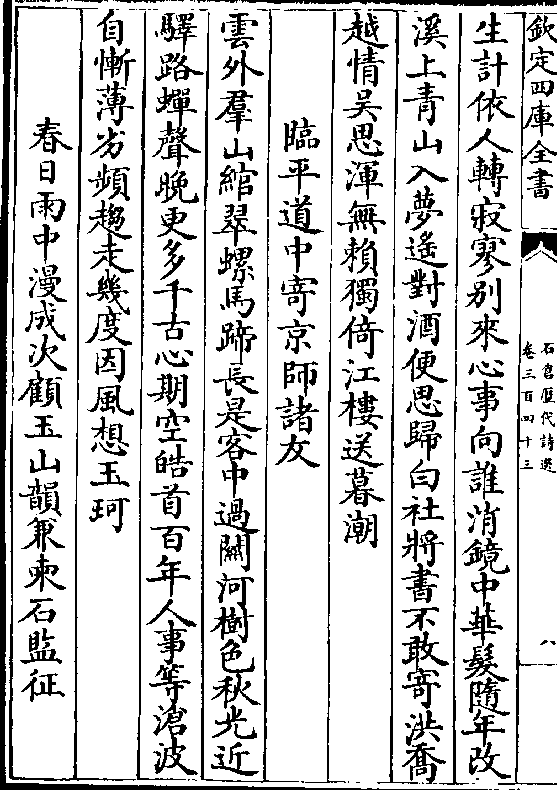 欽定四庫全書
石倉歷代詩選
卷三百四十三
八
生計依人轉寂寥别來心事向誰消鏡中華髮隨年改
溪上青山入夢遙對酒便思歸白社將書不敢寄洪喬
越情吳思渾無賴獨倚江樓送暮潮
臨平道中寄京師諸友
雲外羣山綰翠螺馬蹄長是客中過關河樹色秋光近
驛路蟬聲晚更多千古心期空皓首百年人事等滄波
自慚薄劣頻趨走幾度因風想玉珂
春日雨中漫成次顧玉山韻兼柬石監征